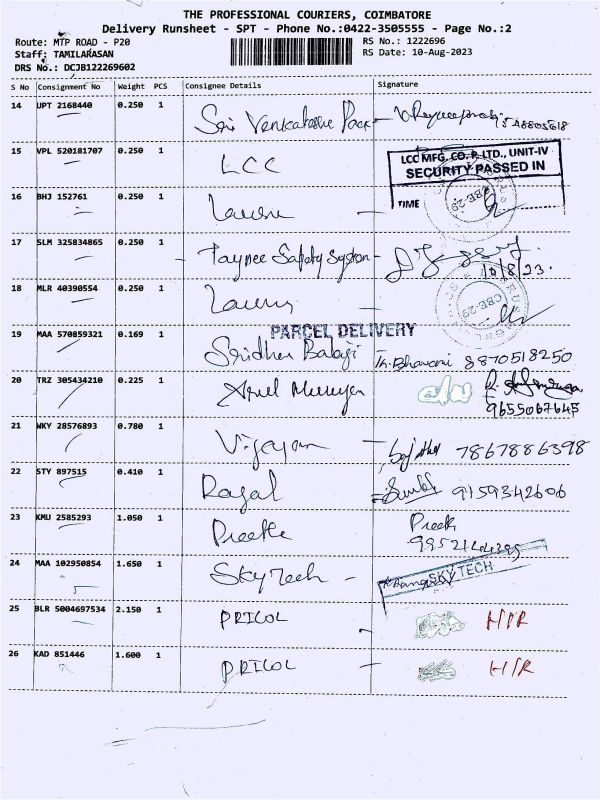 THE PROFESSIONAL COURIERS, COIMBATORE
Delivery Runsheet - SPT - Phone No.:0422-3505555 - Page No.:2
Route: MTP ROAD - P20
RS No.: 1222696
Staff: TAMILARASAN
RS Date: 10-Aug-2023
DRS No.: DCJB122269602
S No Consignment No Weight PCS Consignee Details Signature
14 UPT 2168440 0.250 1 Sri Venkatesha Pack
15 VPL 520181707 0.250 1 LCC
LCC MFG. CO. P. LTD., UNIT-IV
SECURITY PASSED IN
TIME
CBE-29
16 BHJ 152761 0.250 1
17 SLM 325834865 0.250 1 Taynee Safety System
10/8/23.
18 MLR 40390554 0.250 1
CBE-29
PARCEL DELIVERY
19 MAA 570859321 0.169 1 Sridhar Balaji Th. Bhavani 8870518250
20 TRZ 305434210 0.225 1 Arul Murugan
9655067645
21 WKY 28576893 0.780 1 Vijayan 7867886398
22 STY 897515 0.410 1 Rajal 9159342606
23 KMU 2585293 1.050 1 Preethe Preeth
24 MAA 102950854 1.650 1 Skytech
SKYTECH
25 BLR 5004697534 2.150 1 PRICOL H/R
26 KAD 851446 1.600 1 PRICOL H/R